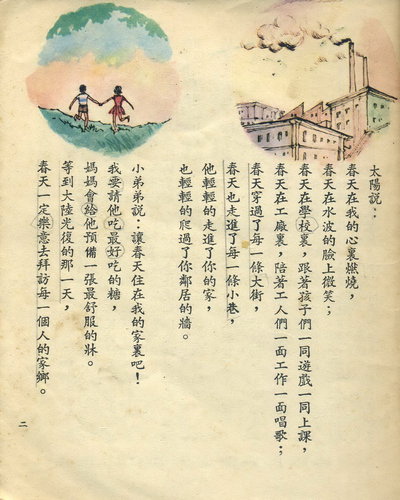 太陽說：
春天在我的心裏燃燒，
春天在水波的臉上微笑；
春天在學校裏，跟著孩子們一同遊戲一同上課，
春天在工廠裏，陪著工人們一面工作一面唱歌；
春天穿過了每一條大街，
春天也走進了每一條小巷，
他輕輕的走進了你的家，
也輕輕的爬過了你鄰居的牆。
小弟弟說：讓春天住在我的家裏吧！
我要請他吃最好吃的糖，
媽媽會給他預備一張最舒服的牀。
等到大陸光復的那一天，
春天一定樂意去拜訪每一個人的家鄉。
二